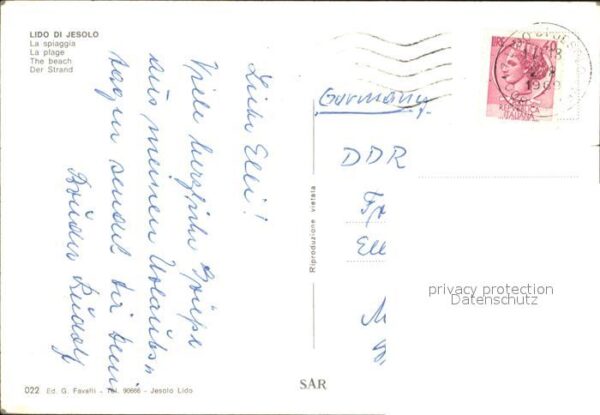 LIDO DI JESOLO
La spiaggia
La plage
The beach
Der Strand
Liebe Elli!
Viele herzliche Grüße
aus meinen Urlaubs=
tagen sendet dir dein
Bruder Rudolf
Riproduzione vietata
40
Germany
DDR
Ell
privacy protection
Datenschutz
022 Ed. G. Favalli - Tel. 90666 - Jesolo Lido
SAR